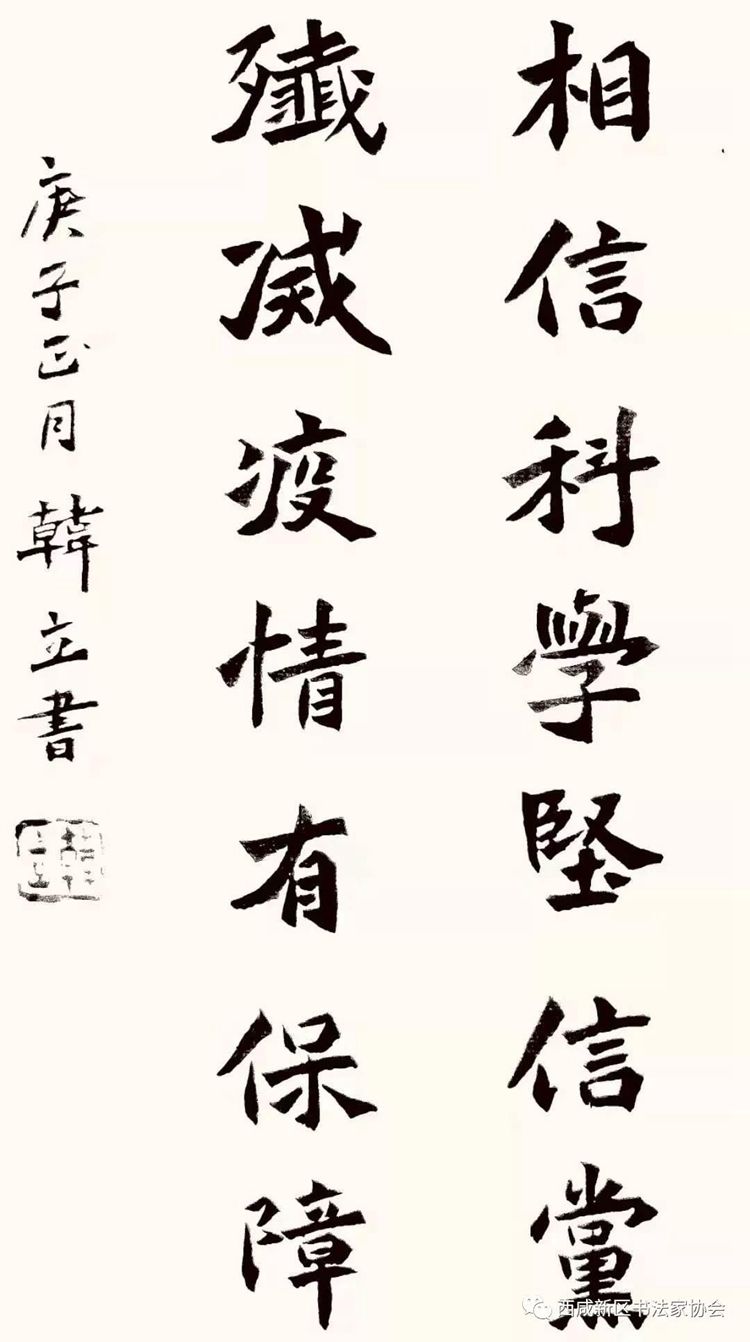 相信科學堅信黨
殲滅疫情有保障
庚子正月韓立書
西咸新区书法家协会